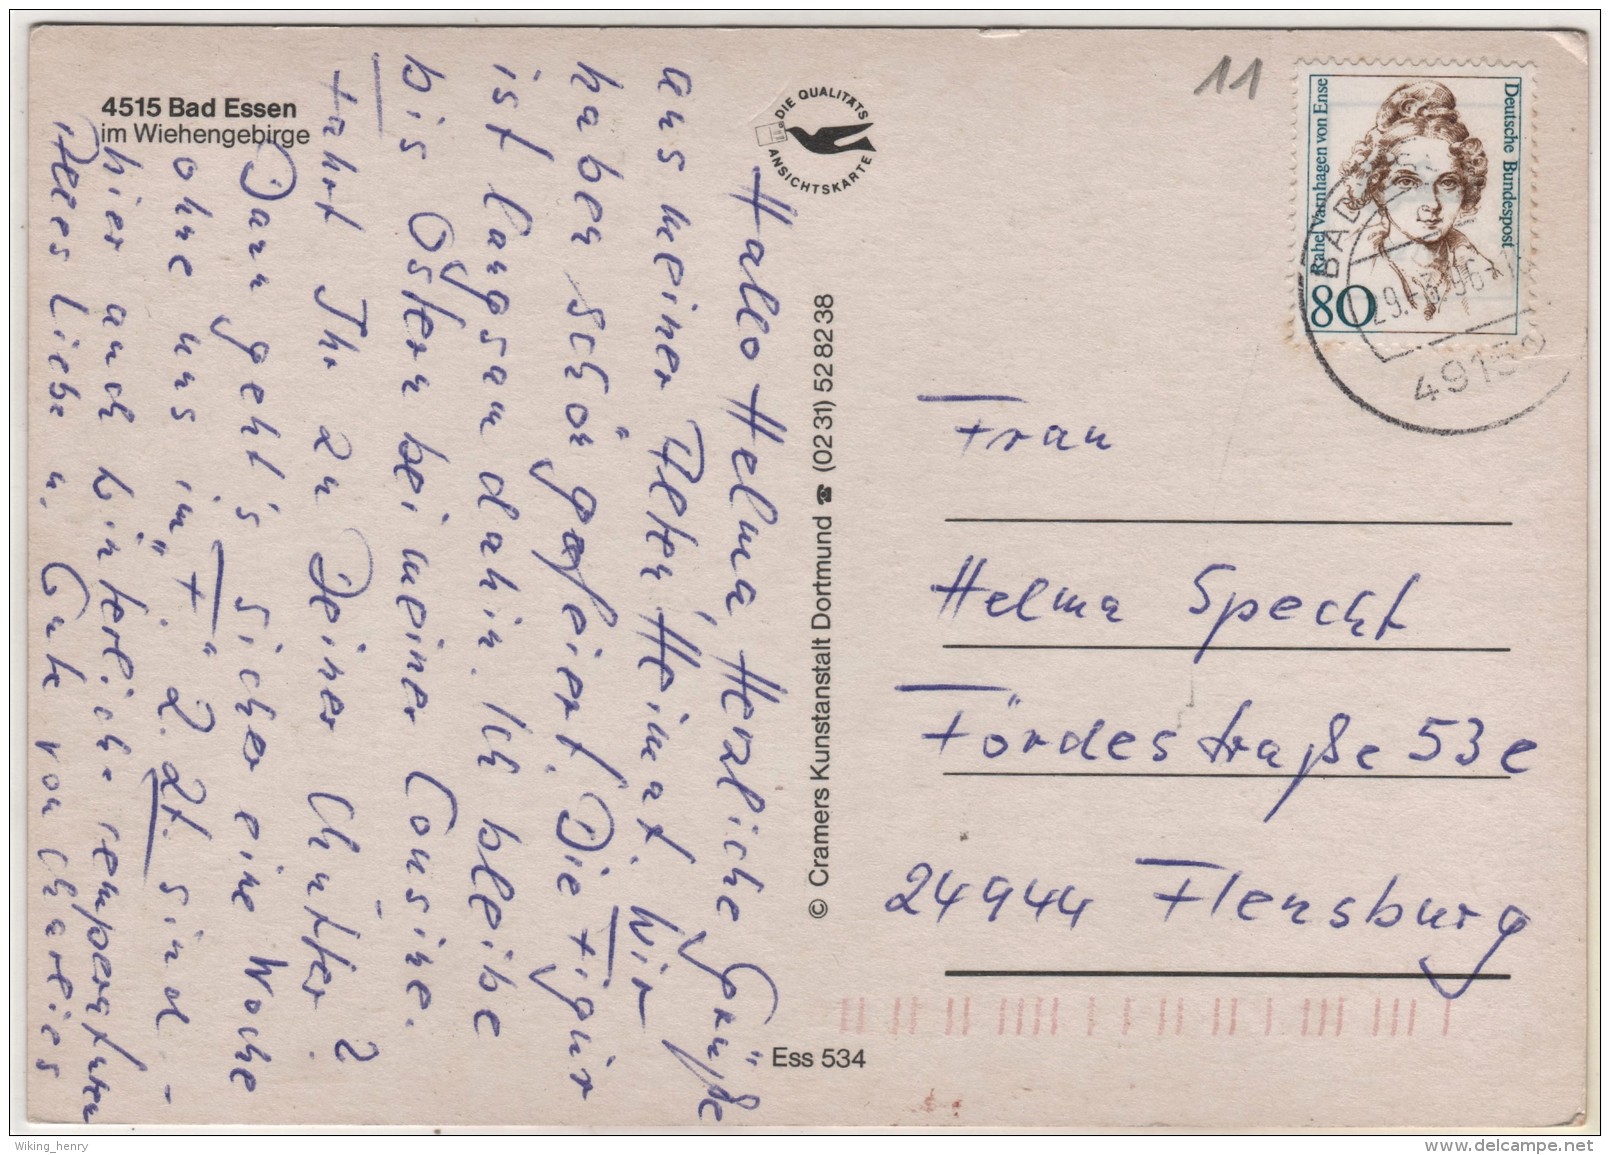 4515 Bad Essen
im Wiehengebirge
Hallo Helma, Herzliche Grüße
aus meiner Alten Heimat. Wir
haben schön gefeiert. Die Figur
ist langsam dahin. Ich bleibe
bis Ostern bei meiner Cousine.
Fahrt Ihr zu Deiner
Dann geht's sicher eine Woche
ohne uns im "F." Z. Zt. sind
hier auch winterliche Temperaturen
Alles Liebe u. Gute von
DIE QUALITÄTS
ANSICHTSKARTE
© Cramers Kunstanstalt Dortmund ☎ (02 31) 52 82 38
Ess 534
11
Deutsche Bundespost
Rahel Varnhagen von Ense
80
BAD
49152
Frau
Helma Specht
Fördestraße 53e
24944 Flensburg
Wiking_henry
www.delcampe.net